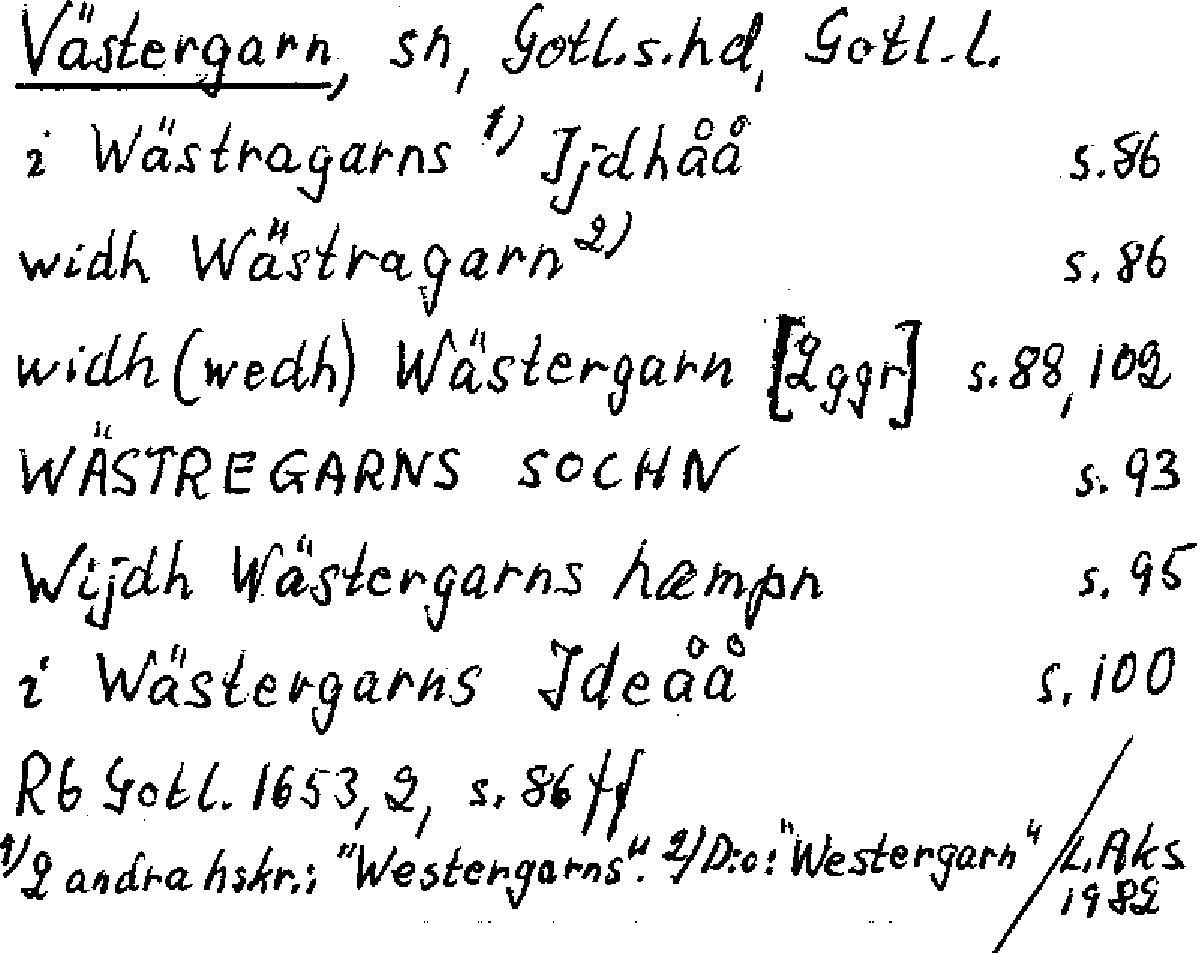 Västergarn, sn, Gotl.s.hd, Gotl.l.
i Wästragarns 1) Ijdhåå s.86
widh Wästragarn 2) s.86
widh (wedh) Wästergarn [2ggr] s.88, 102
WÄSTREGARNS SOCHN s.93
Wijdh Wästergarns hæmpn s.95
i Wästergarns Ideåå s.100
Rb Gotl. 1653, 2, s.86 ff
1) 2 andra hskr.: "Westergarns". 2) D:o: "Westergarn" / L.Aks
1982